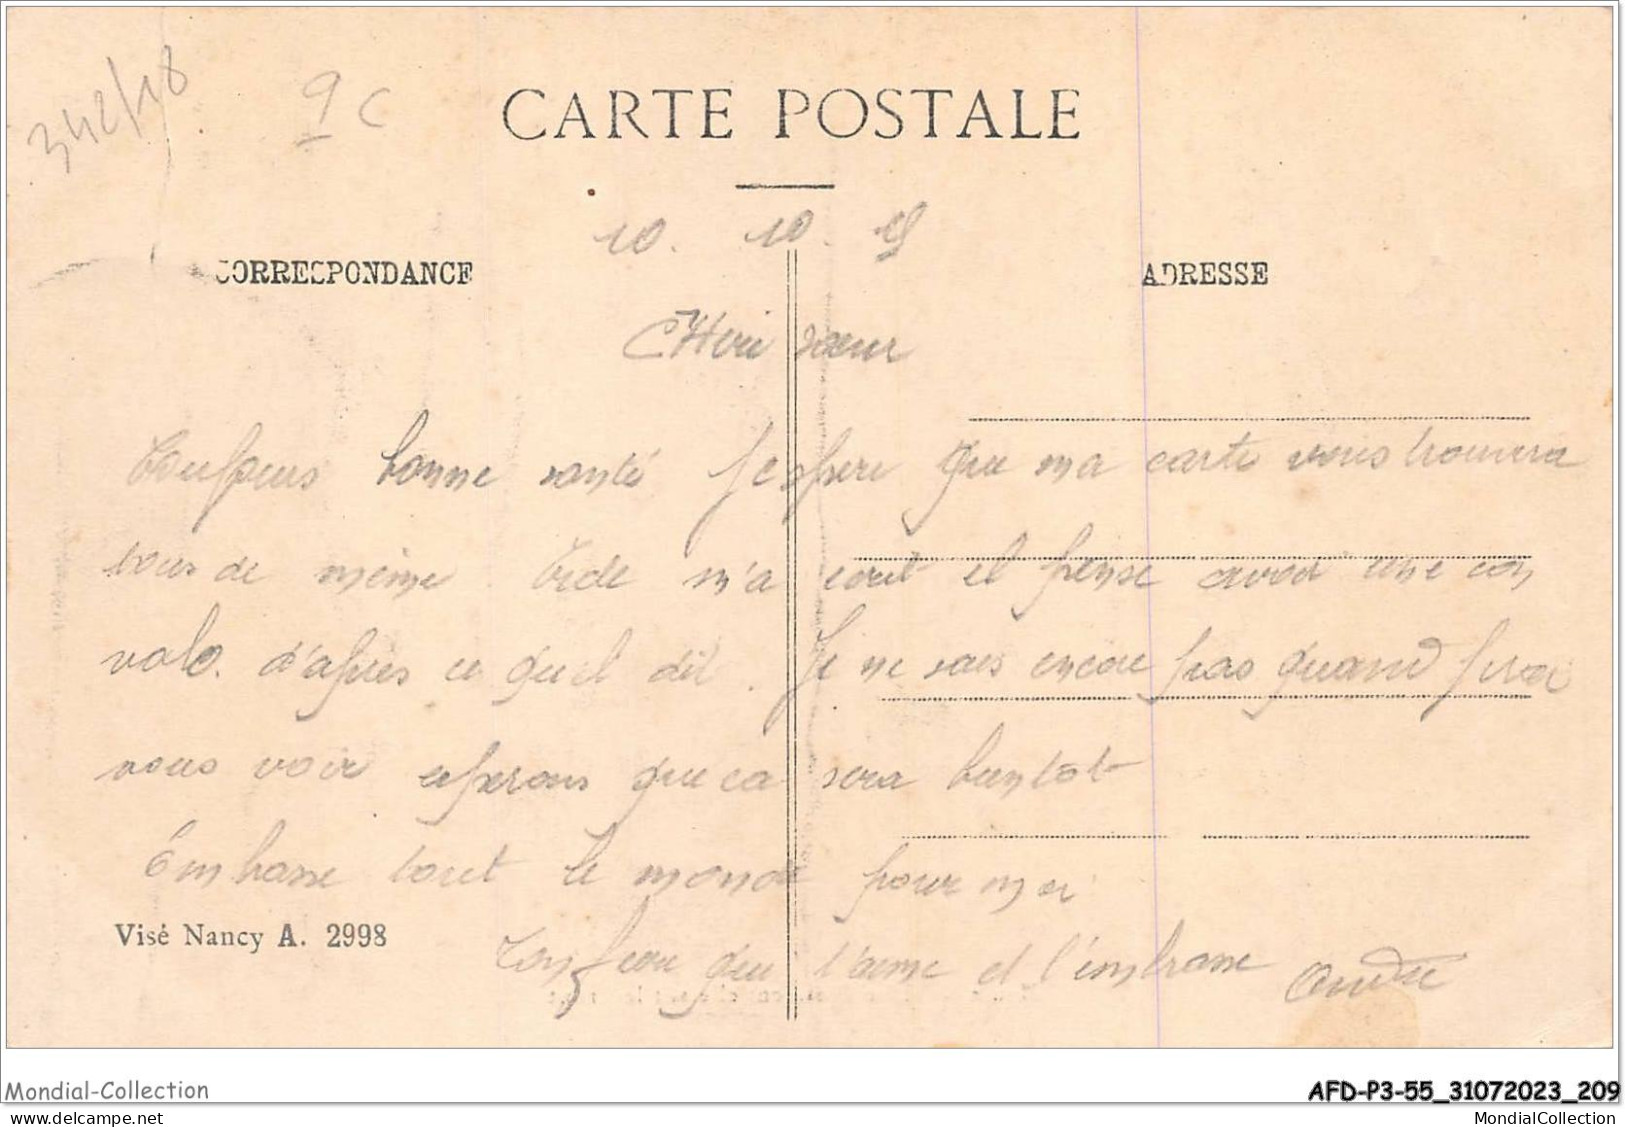 342/18
9 C
CARTE POSTALE
10. 10. 15
CORRESPONDANCE
ADRESSE
CHeri sœur
Toujours bonne santé J'espere que ma carte vous trouvera
tous de même m'a ecrit il pense avoir une con
valo. d'apres ce quil dit. Je ne sais encore pas quand j'irai
vous voir esperons que ca sera bientot
Embrasse tout le monde pour moi
Visé Nancy A. 2998
Ton frere qui t'aime et t'embrasse André
Mondial-Collection
AFD-P3-55_31072023_209
MondialCollection